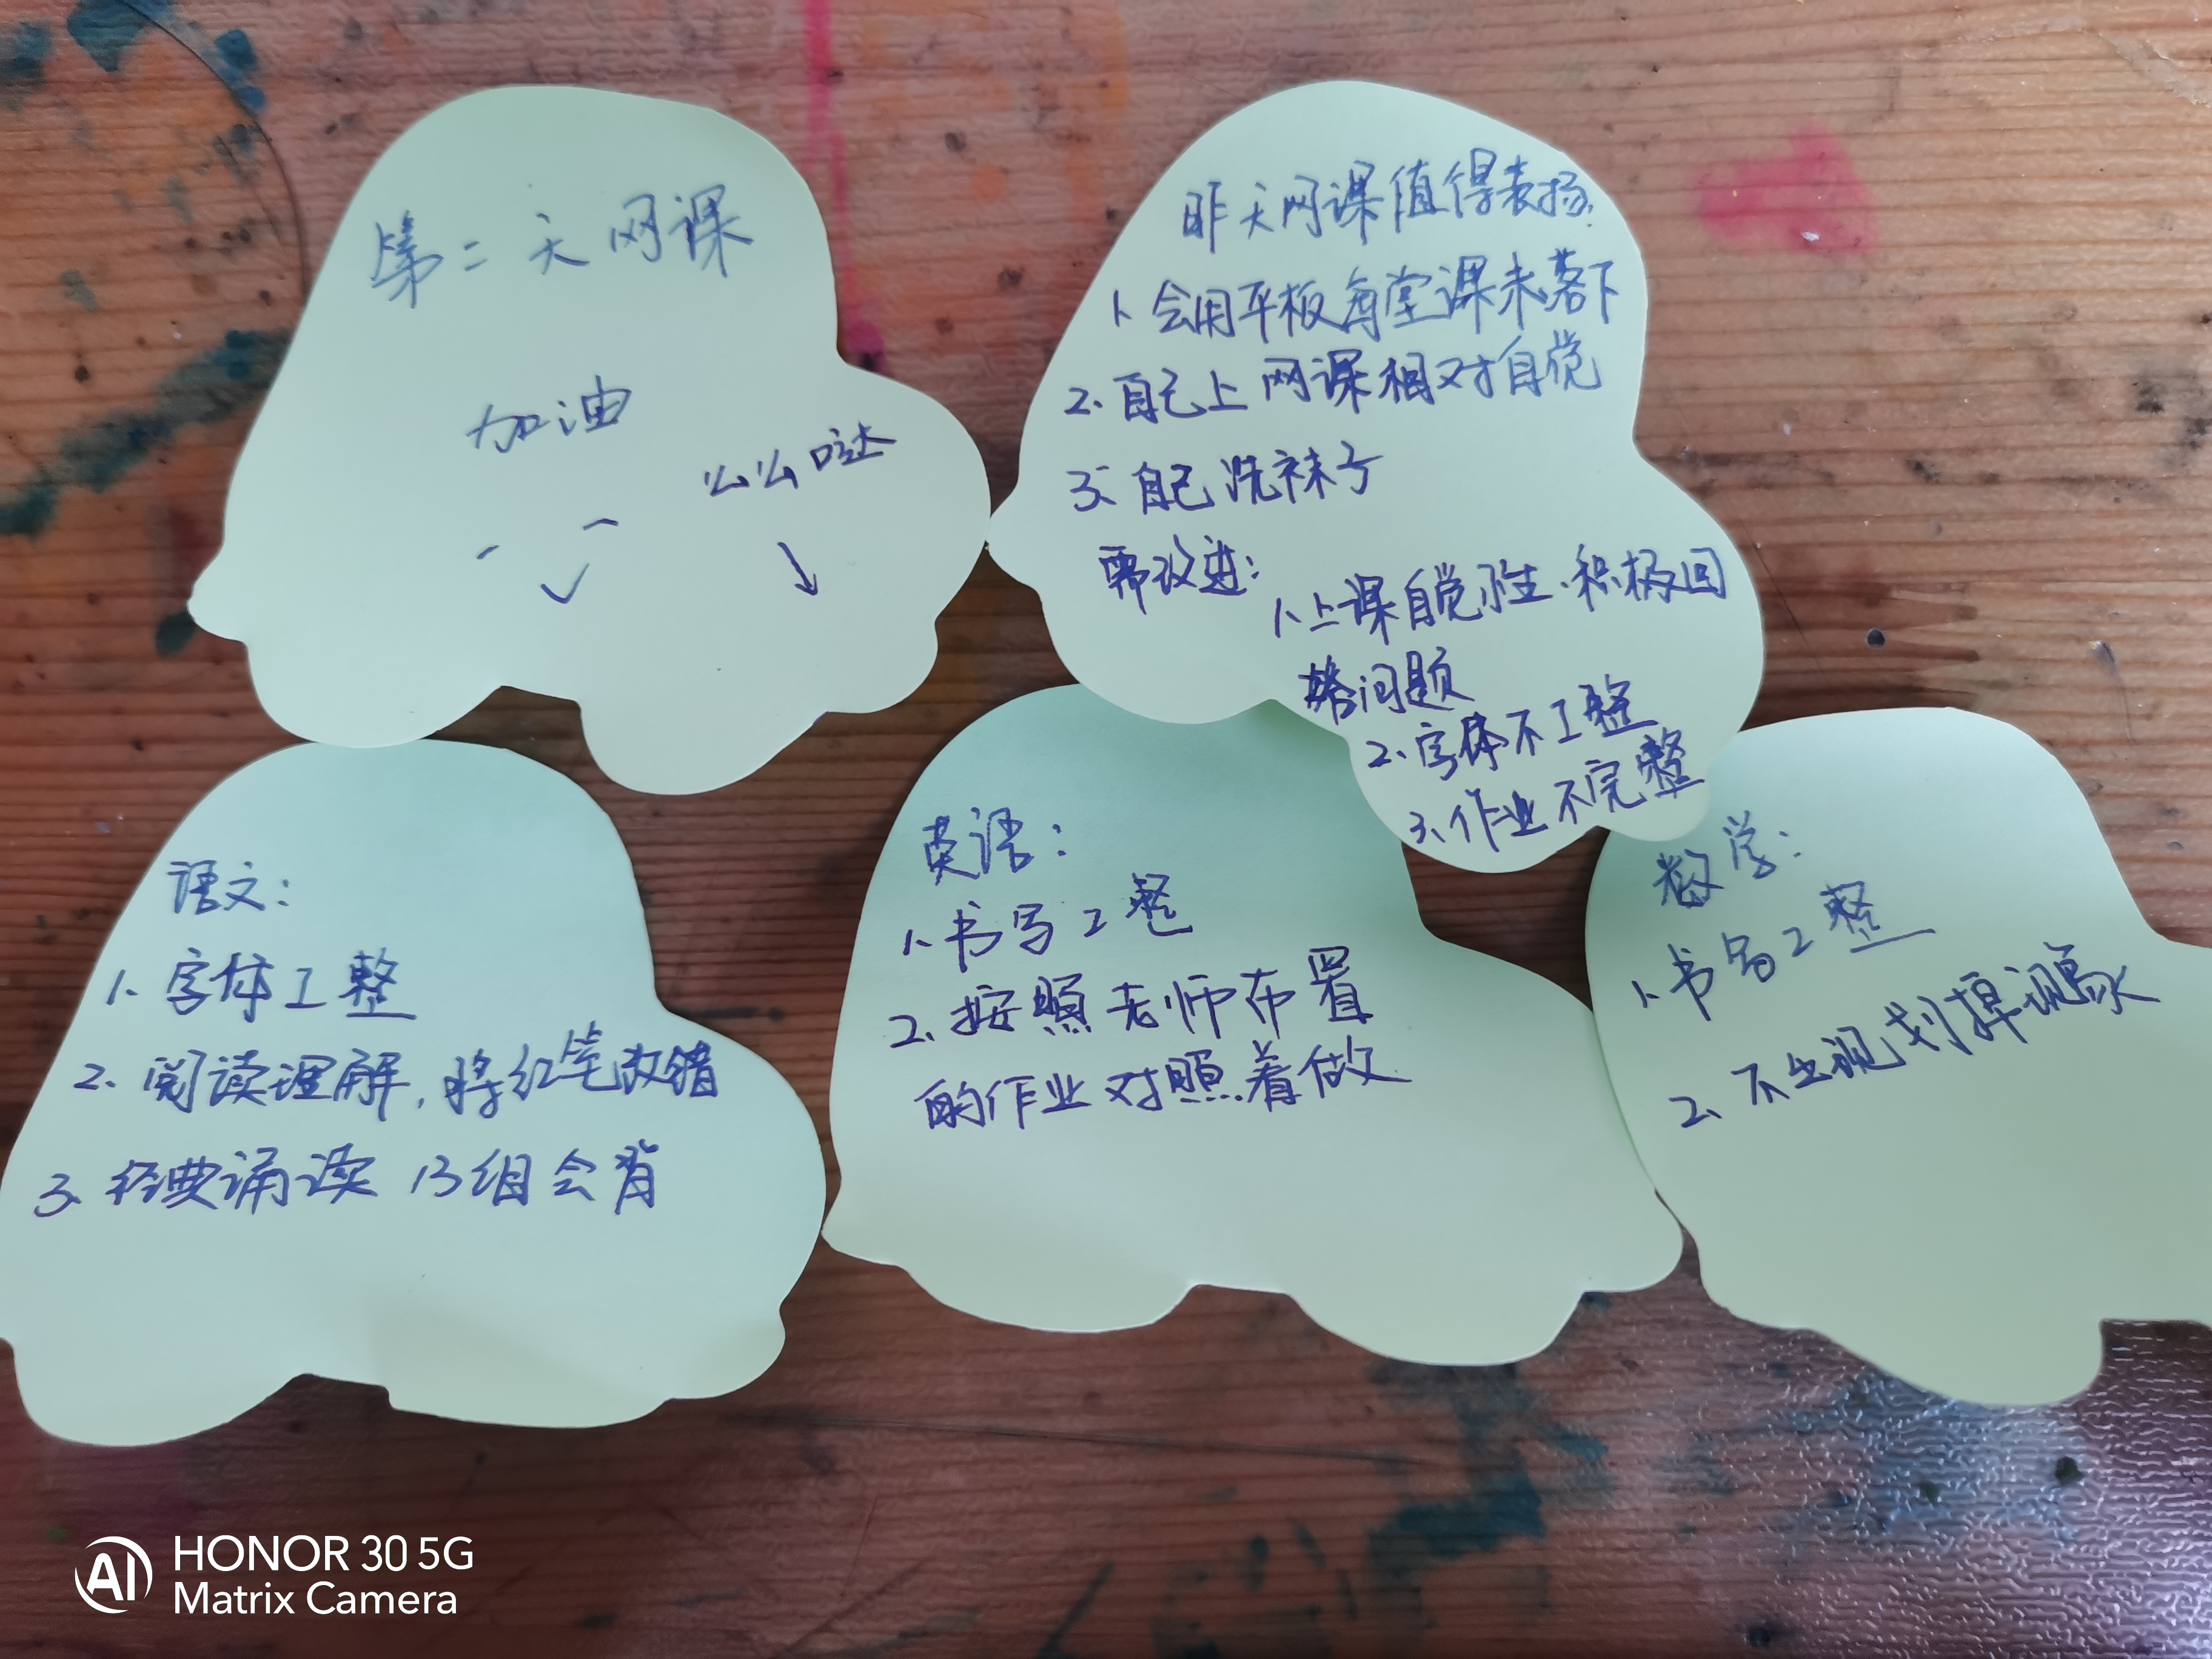 第二天网课
加油
么么哒
昨天网课值得表扬:
1、会用平板每堂课未落下
2、自己上网课相对自觉
3、自己洗袜子
需改进:
1、上课自觉性、积极回
答问题
2、字体不工整
3、作业不完整
语文:
1、字体工整
2、阅读理解,将红笔改错
3、经典诵读 13组会背
英语:
1、书写工整
2、按照老师布置
的作业对照着做
数学:
1、书写工整
2、不出现划掉现象
HONOR 30 5G
Matrix Camera